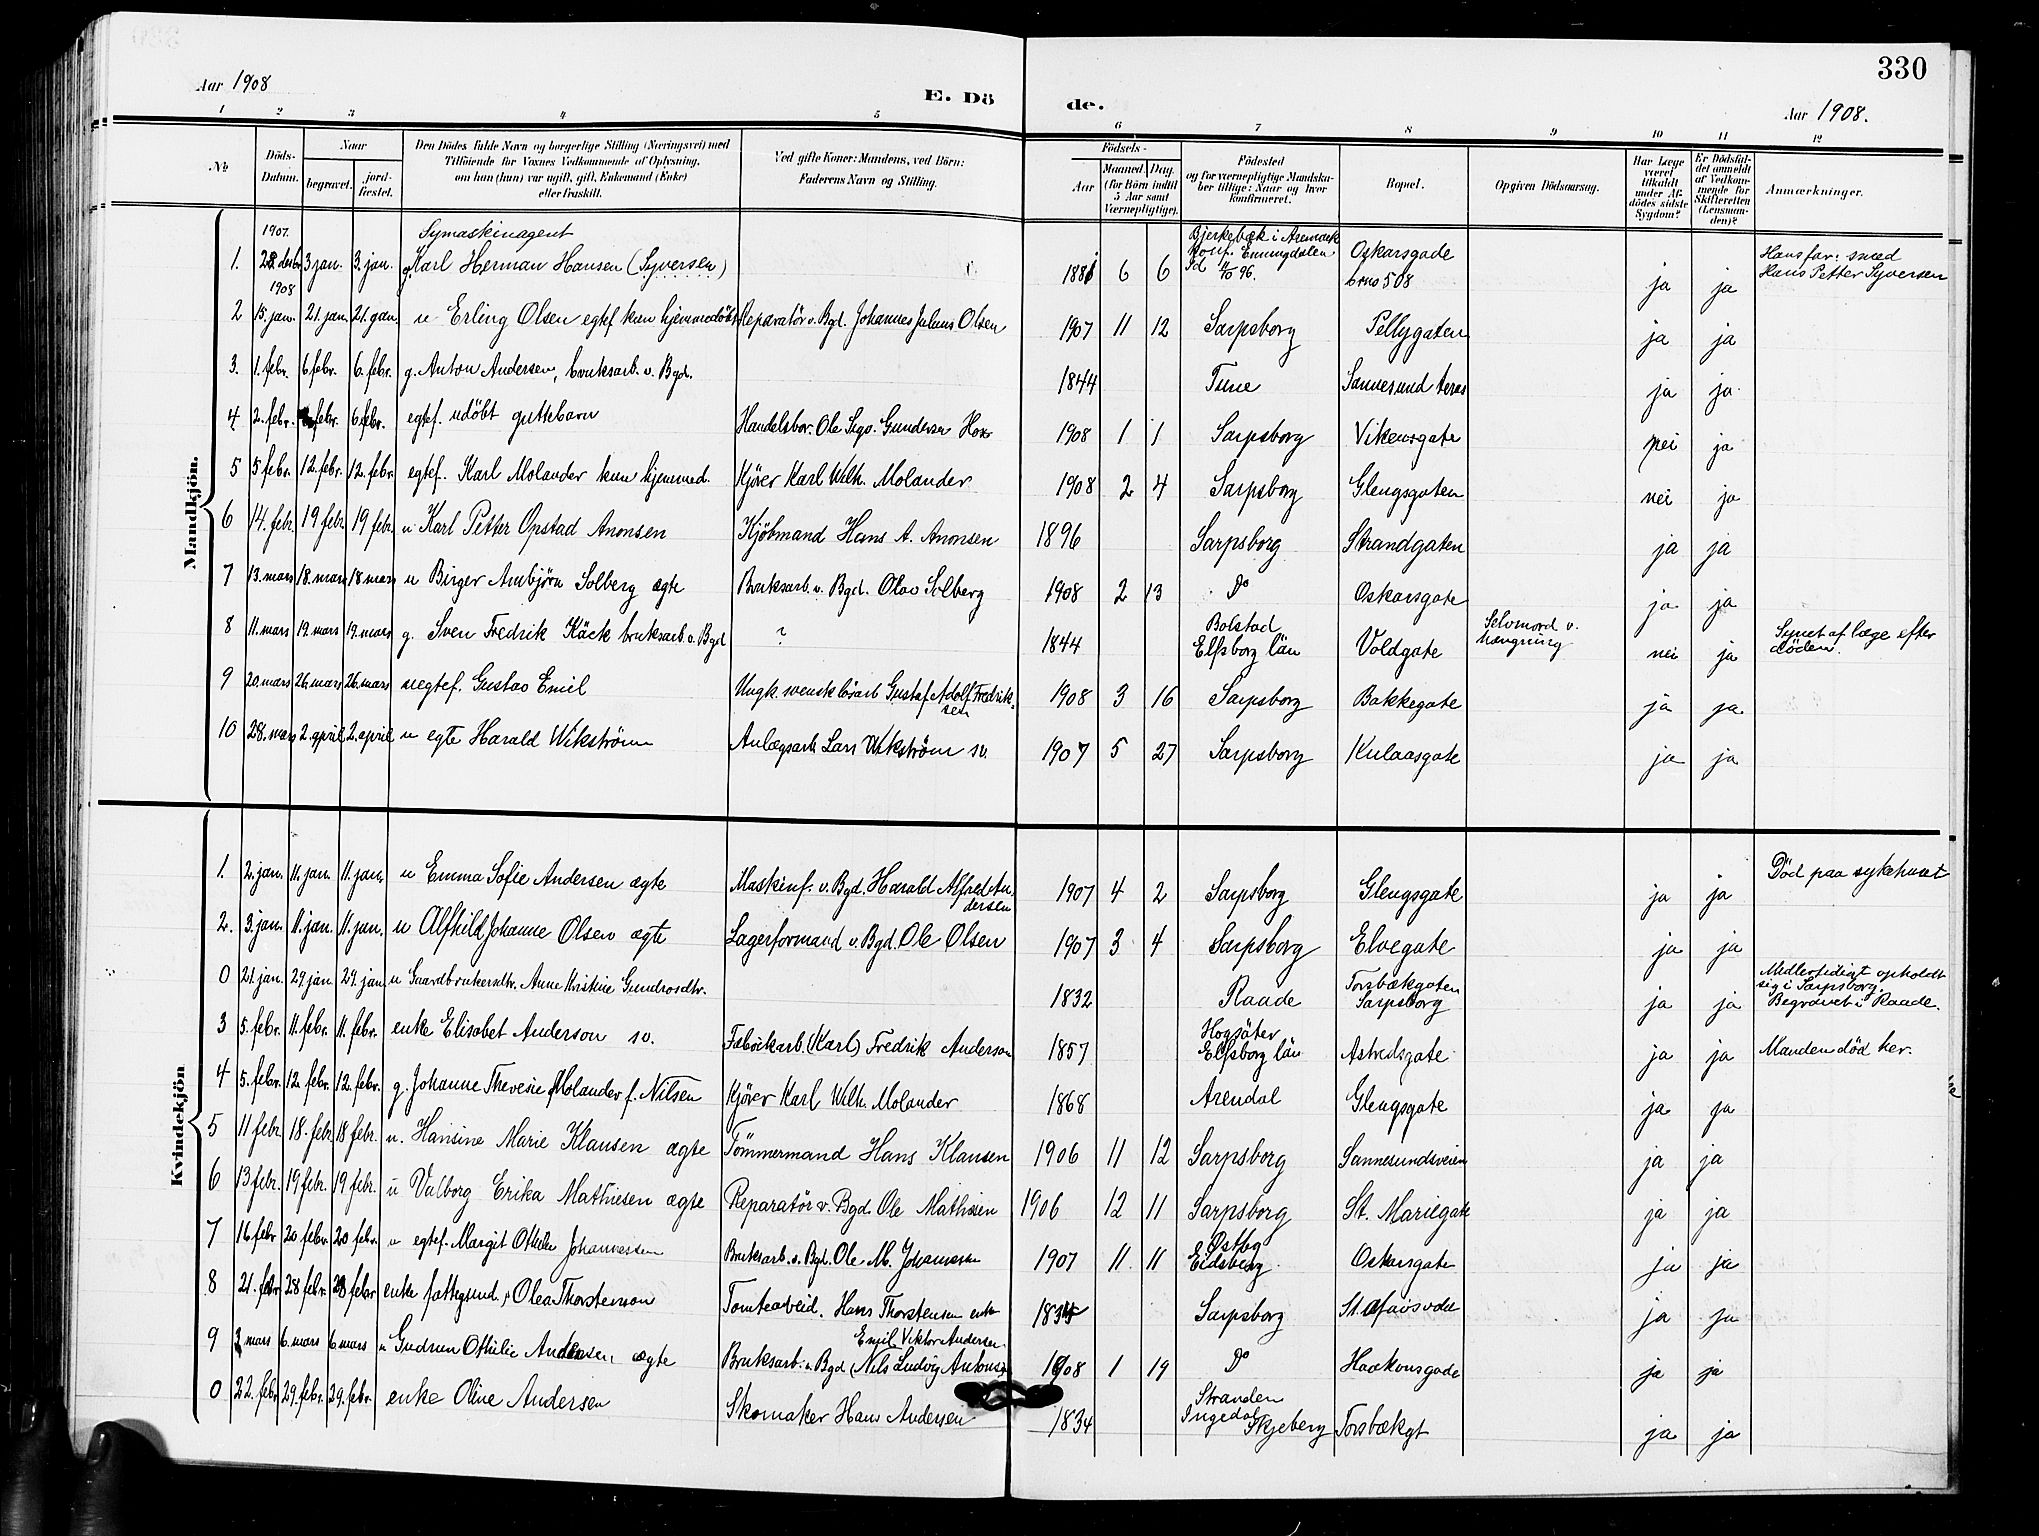 330
Aar 1908
E. Dö de.
Aar 1908.
1 2 3 4 5 6 7 8 9 10 11 12
No. Döds-Datum. Naar begravet. jord-fæstet. Den Dödes fulde Navn og borgerlige Stilling (Næringsvei) med Tilföiende for Voxnes Vedkommende af Oplysning, om han (hun) var ugift, gift, Enkemand (Enke) eller fraskilt. Ved gifte Koner: Mandens, ved Börn: Faderens Navn og Stilling. Födsels- Aar Maaned. Dag. (for Börn indtil 5 Aar samt Værnepligtige). Födested og for værnepligtige Mandska-ber tillige: Naar og hvor konfirmeret. Bopæl. Opgiven Dödsaarsag. Har Læge været tilkaldt under Af-dödes sidste Sygdom? Er Dödsfal-det anmeldt af Vedkom-mende for Skifteretten (Lensman-den)? Anmærkninger.
Mandkjön.
1907. Symaskinagent Bjerkebæk i Aremark
1. 28. desbr 3 jan. 3. jan. g. Karl Herman Hansen (Syversen) 1881 6 6 Konf. Enningdalen Id 4/10 96. Oskarsgade brno 508 ja ja Hans far: smed Hans Petter Syversen
1908
2 15. jan. 21. jan. 21. jan. u Erling Olsen egtef kun hjemmedöbt Reparatör v. Bgd. Johannes Julius Olsen 1907 11 12 Sarpsborg Pellygaten ja ja
3. 1. febr. 6 febr. 6. febr. g. Anton Andersen, bruksarb. v. Bgd. 1844 Tune Sannesund teras ja ja
4 2. febr. febr. 6 febr. egtef. udöbt guttebarn Handelsbor. Ole Sigv. Gundersen 1908 1 1 Sarpsborg Vikensgate nei ja
5 5 febr. 12. febr. 12. febr. egtef. Karl Molander kun hjemmed. Kjörer Karl Wilh. Molander 1908 2 4 Sarpsborg Glengsgaten nei ja
6 14. febr. 19 febr. 19 febr. u. Karl Petter Opstad Anonsen Kjöbmand Hans A. Anonsen 1896 Sarpsborg Strandgaten ja ja
7 13. mars 18. mars 18 mars u Birger Arnbjørn Solberg ægte Bruksarb. v. Bgd. Olav Solberg 1908 2 13 Do Oskarsgate ja ja
8 11. mars 19. mars 19. mars g. Sven Fredrik Käck bruksarb. v. Bgd ? 1844 Bolstad Elfsborg län Voldgate Selvmord v. hængning nei ja Synet af læge efter döden.
9 20. mars 26. mars 26. mars uegtef. Gustav Emil Ungk. svensk lösarb. Gustaf Adolf Fredrik-sen 1908 3 16 Sarpsborg Bakkegate ja ja.
10 28. mars 2. april 2. april u egte Harald Wikström Anlægsarb. Lars Wikström sv. 1907 5 27 Sarpsborg Kulaasgate ja ja
Kvindekjön
1. 2. jan. 11. jan. 11. jan. u Emma Sofie Andersen ægte Maskinf. v. Bgd. Harald Alfred An-dersen 1907 4 2 Sarpsborg Glengsgate ja ja Död paa sykehuset
2. 3. jan. 11. jan. 11. jan. u Alfhild Johanne Olsen ægte Lagerformand v. Bgd. Ole Olsen 1907 3 4 Sarpsborg Elvegate ja ja
0 21. jan. 29. jan. 29. jan. u Gaardbrukersdtr. Anne Kristine Gundrosdtr. 1832 Raade Torsbækgaten Sarpsborg ja ja Midlertidigt opholdt sig i Sarpsborg. Begravet i Raade.
3 5. febr. 11. febr. 11. febr. enke Elisabet Anderson sv. Fabrikarb. (Karl) Fredrik Anderson 1857 Hogsäter Elfsborg län Astridsgate ja ja Manden död her.
4 5. febr. 12. febr. 12. febr. g. Johanne Theresie Molander f. Nilsen Kjörer Karl Wilh. Molander 1868 Arendal Glengsgate ja ja
5 11 febr. 18. febr. 18 febr. u. Hansine Marie Klausen ægte Tömmermand Hans Klausen 1906 11 12 Sarpsborg Sannesundsveien ja ja
6 13 febr. 19 febr. 19 febr. u Valborg Erika Mathiesen ægte Reparatör v. Bgd. Ole Mathisen 1906 12 11 Sarpsborg St. Mariegate ja ja
7 16. febr 20 febr. 20 febr. u egtef. Margit Othilie Johannessen Bruksarb. v. Bgd. Ole M. Johannessen 1907 11. 11 Östby Eidsberg Oskarsgate ja ja
8 21. febr 28 febr. 28 febr enke fattigund. Olea Thorstenson Tomtearbeid. Hans Thorstensen enke Sarpsborg ja ja
9 3 mars 6. mars 6 mars u Gudrun Othilie Andersen, ægte Emil Viktor Andersen Bruksarb. v. Bgd (Nils Ludvig Antonsen) 1908 1 19 Do Haakonsgade ja ja
0 22. febr 29. febr. 29. febr. enke Oline Andersen Skomaker Hans Andersen 1834 Stranden Ingedal Skjeberg Torsbækgt ja ja